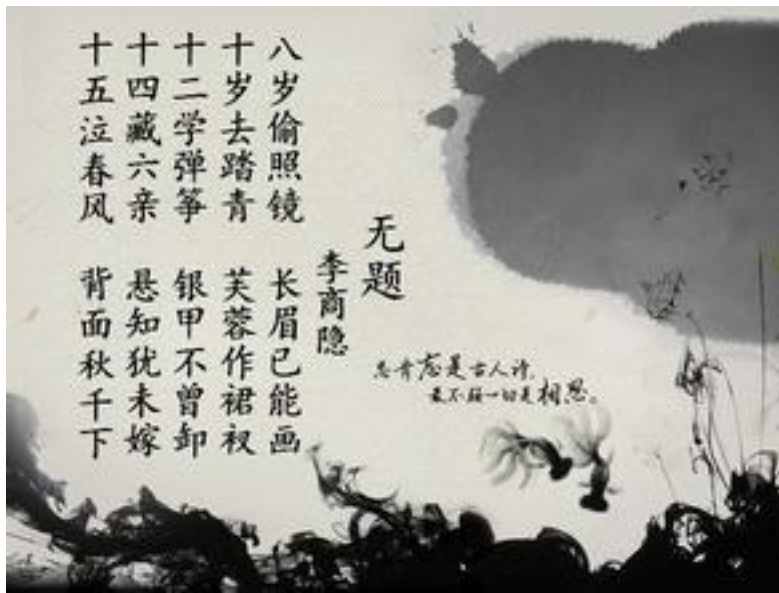 无题
李商隐
八岁偷照镜 长眉已能画
十岁去踏青 芙蓉作裙衩
十二学弹筝 银甲不曾卸
十四藏六亲 悬知犹未嫁
十五泣春风 背面秋千下
古人诗
最不 一切是相思。